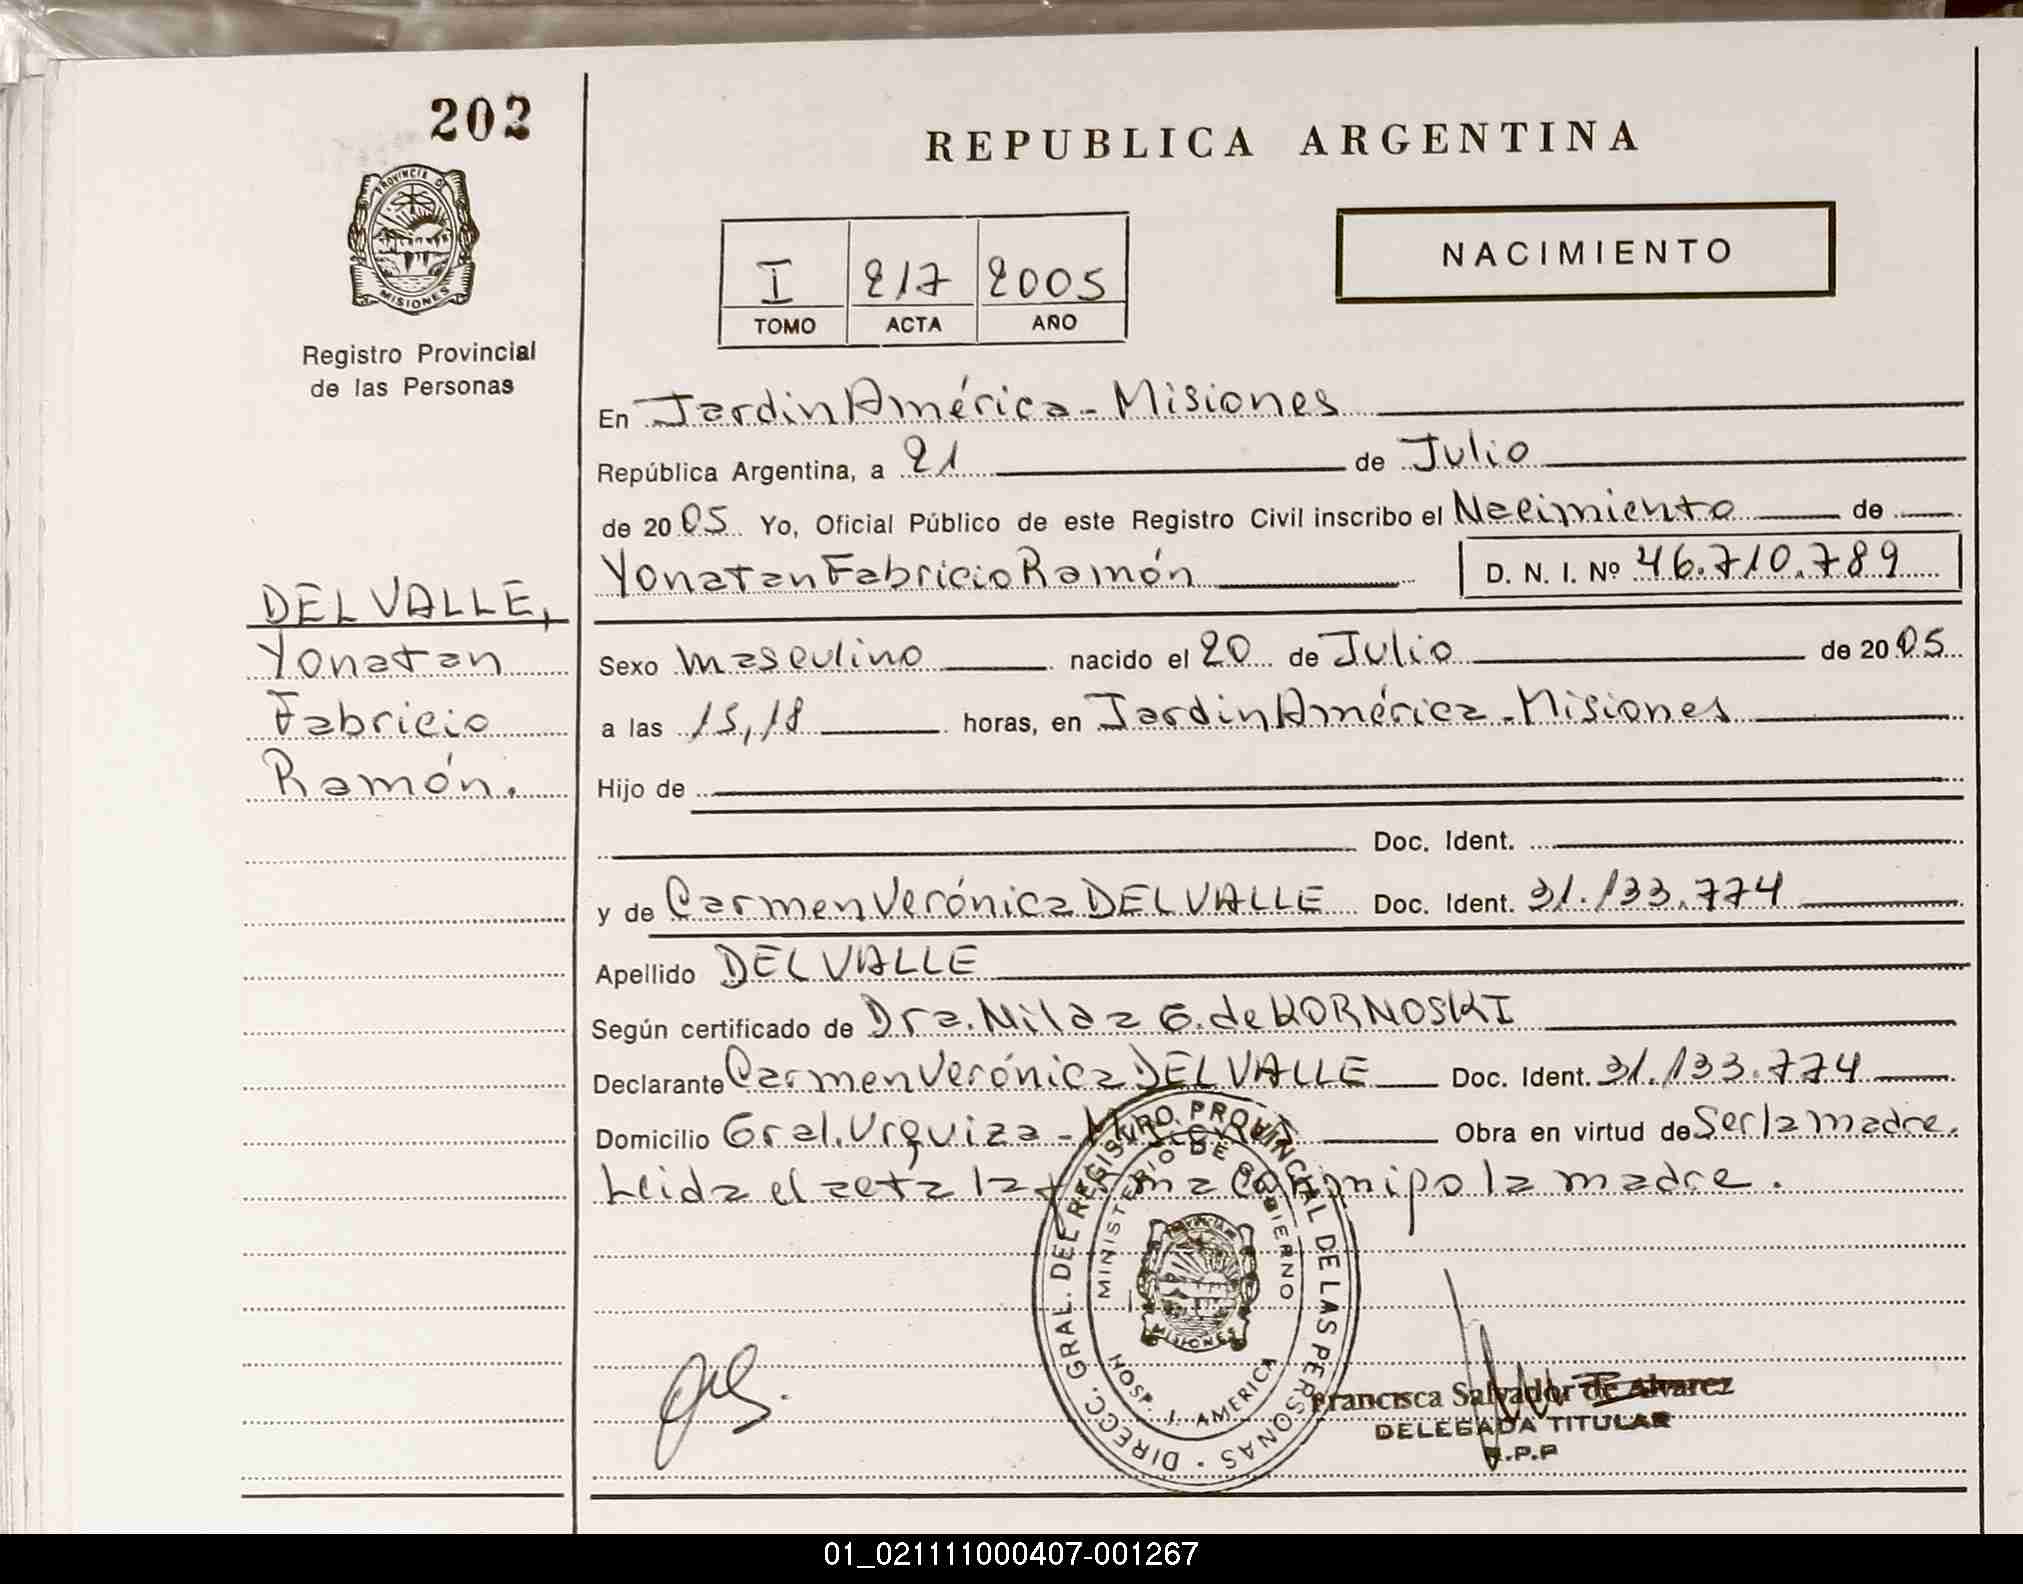 202
REPUBLICA ARGENTINA
PROVINCIA DE
MISIONES
Registro Provincial
de las Personas
I 217 2005
TOMO ACTA AÑO
NACIMIENTO
En Jardin América - Misiones
República Argentina, a 21 de Julio
de 2005 Yo, Oficial Público de este Registro Civil inscribo el Nacimiento de
Yonatan Fabricio Ramón D. N. I. Nº 46.710.789
DEL VALLE,
Yonatan
Fabricio
Ramón.
Sexo masculino nacido el 20 de Julio de 2005
a las 15,18 horas, en Jardin América - Misiones
Hijo de
Doc. Ident.
y de Carmen Verónica DEL VALLE Doc. Ident. 31.133.774
Apellido DEL VALLE
Según certificado de Dra. Nilda G. de KORNOSKI
Declarante Carmen Verónica DEL VALLE Doc. Ident. 31.133.774
Domicilio Gral. Urquiza - Obra en virtud de Ser la madre.
Leida el acta la firma conmipo la madre.
DIRECC. GRAL. DEL REGISTRO PROVINCIAL DE LAS PERSONAS
MINISTERIO DE GOBIERNO
MISIONES
HOSP. J. AMERICA
Francisca Salvador de Alvarez
DELEGADA TITULAR
R.P.P
01_021111000407-001267